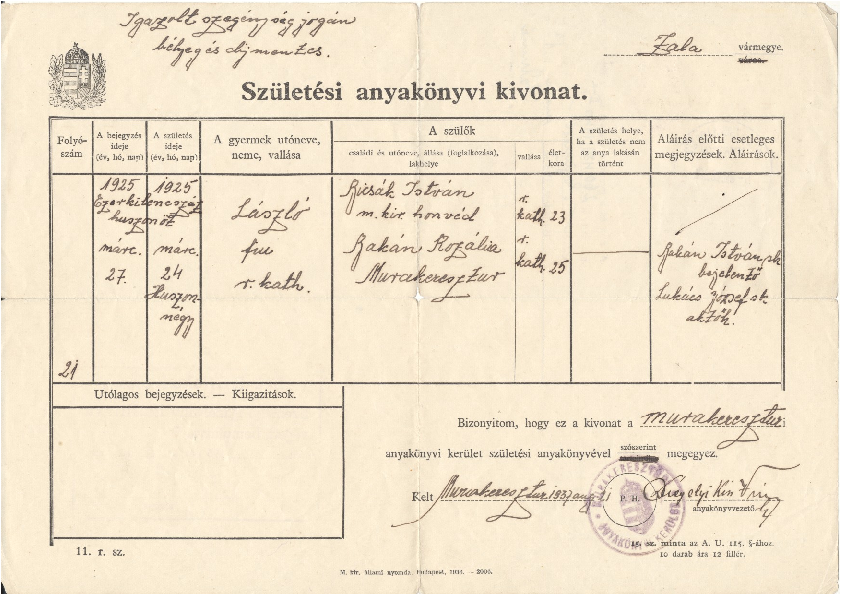 Igazolt szegénység jogán
bélyeg és díjmentes.
Zala vármegye.
város.
Születési anyakönyvi kivonat.
Folyó-
szám
A bejegyzés
ideje
(év, hó, nap)
A születés
ideje
(év, hó, nap)
A gyermek utóneve,
neme, vallása
A szülők
családi és utóneve, állása (foglalkozása),
lakhelye
vallása
élet-
kora
A születés helye,
ha a születés nem
az anya lakásán
történt
Aláírás előtti esetleges
megjegyzések. Aláírások.
21
1925
Ezerkilencszáz
huszonöt
márc.
27.
1925
márc.
24
Huszon-
négy
László
fiu
r. kath.
István
m. kir. honvéd
Rakán Rozália
Murakeresztur
r.
kath
23
r.
kath
25
Rakán István sk
bejelentő
Lukács József sk
Utólagos bejegyzések. — Kiigazitások.
Bizonyitom, hogy ez a kivonat a Murakereszturi
anyakönyvi kerület születési anyakönyvével szószerint megegyez.
Kelt Murakeresztur 1937 aug
P. H.
anyakönyvvezető.
11. r. sz.
15. sz. minta az A. U. 115. §-ához.
10 darab ára 12 fillér.
M. kir. állami nyomda, Budapest,